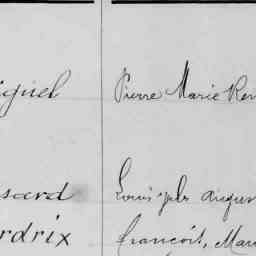 iguel
Pierre Marie Ren
sard
Louis Jules Augus
rdrix
François, Mari